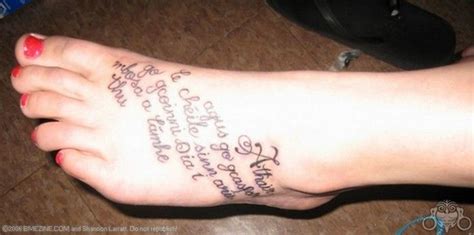 Athair
agus go gcasfa
le chéile sinn arís
go gcoinni Dia i
mbosa a lámhe
thu
©2008 BMEZINE.COM and Shannon Larratt. Do not republish!